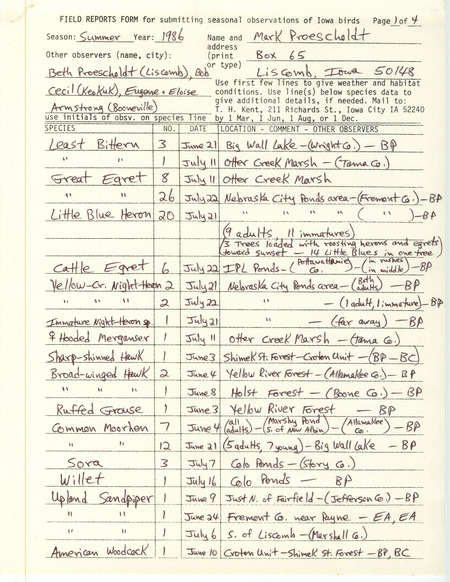 FIELD REPORTS FORM for submitting seasonal observations of Iowa birds Page 1 of 4
Season: Summer Year: 1986 Name and address (print or type) Mark Proescholdt
Box 65
Liscomb, Iowa 50148
Other observers (name, city):
Beth Proescholdt (Liscomb), Bob
Cecil (Keokuk), Eugene + Eloise
Armstrong (Booneville)
use initials of obsv. on species line
Use first few lines to give weather and habitat
conditions. Use line(s) below species data to
give additional details, if needed. Mail to:
T. H. Kent, 211 Richards St., Iowa City IA 52240
by 1 Mar, 1 Jun, 1 Aug, or 1 Dec.
SPECIES NO. DATE LOCATION - COMMENT - OTHER OBSERVERS
Least Bittern 3 June 21 Big Wall Lake - (Wright Co.) - BP
" " 1 July 11 Otter Creek Marsh - (Tama Co.)
Great Egret 8 July 11 Otter Creek Marsh
" " 26 July 22 Nebraska City Ponds area - (Fremont Co.) - BP
Little Blue Heron 20 July 21 " " " " ( " ) - BP
(9 adults, 11 immatures)
(3 trees loaded with roosting herons and egrets
toward sunset - 14 Little Blues in one tree)
Cattle Egret 6 July 22 IPL Ponds - (Pottawattamie Co.) - (in rushes in middle) - BP
Yellow-Cr. Night-Heron 2 July 21 Nebraska City Ponds area - (Both adults) - BP
" " " 2 July 22 " - (1 adult, 1 immature) - BP
Immature Night-Heron sp. 1 July 21 " - (far away) - BP
♀ Hooded Merganser 1 July 11 Otter Creek Marsh - (Tama Co.)
Sharp-shinned Hawk 1 June 3 Shimek St. Forest - Croton Unit - (BP - BC)
Broad-winged Hawk 2 June 4 Yellow River Forest - (Allamakee Co.) - BP
" " 1 June 8 Holst Forest - (Boone Co.) - BP
Ruffed Grouse 1 June 3 Yellow River Forest - BP
Common Moorhen 7 June 4 (all adults) - (Marshy Pond S. of New Albin) - (Allamakee Co.) - BP
" 12 June 21 (5 adults, 7 young) - Big Wall Lake - BP
Sora 3 July 7 Colo Ponds - (Story Co.)
Willet 1 July 16 Colo Ponds - BP
Upland Sandpiper 1 June 9 Just N. of Fairfield - (Jefferson Co.) - BP
" " 1 June 24 Fremont Co. near Payne - EA, EA
" " 1 July 6 S. of Liscomb - (Marshall Co.)
American Woodcock 1 June 10 Croton Unit - Shimek St. Forest - BP, BC